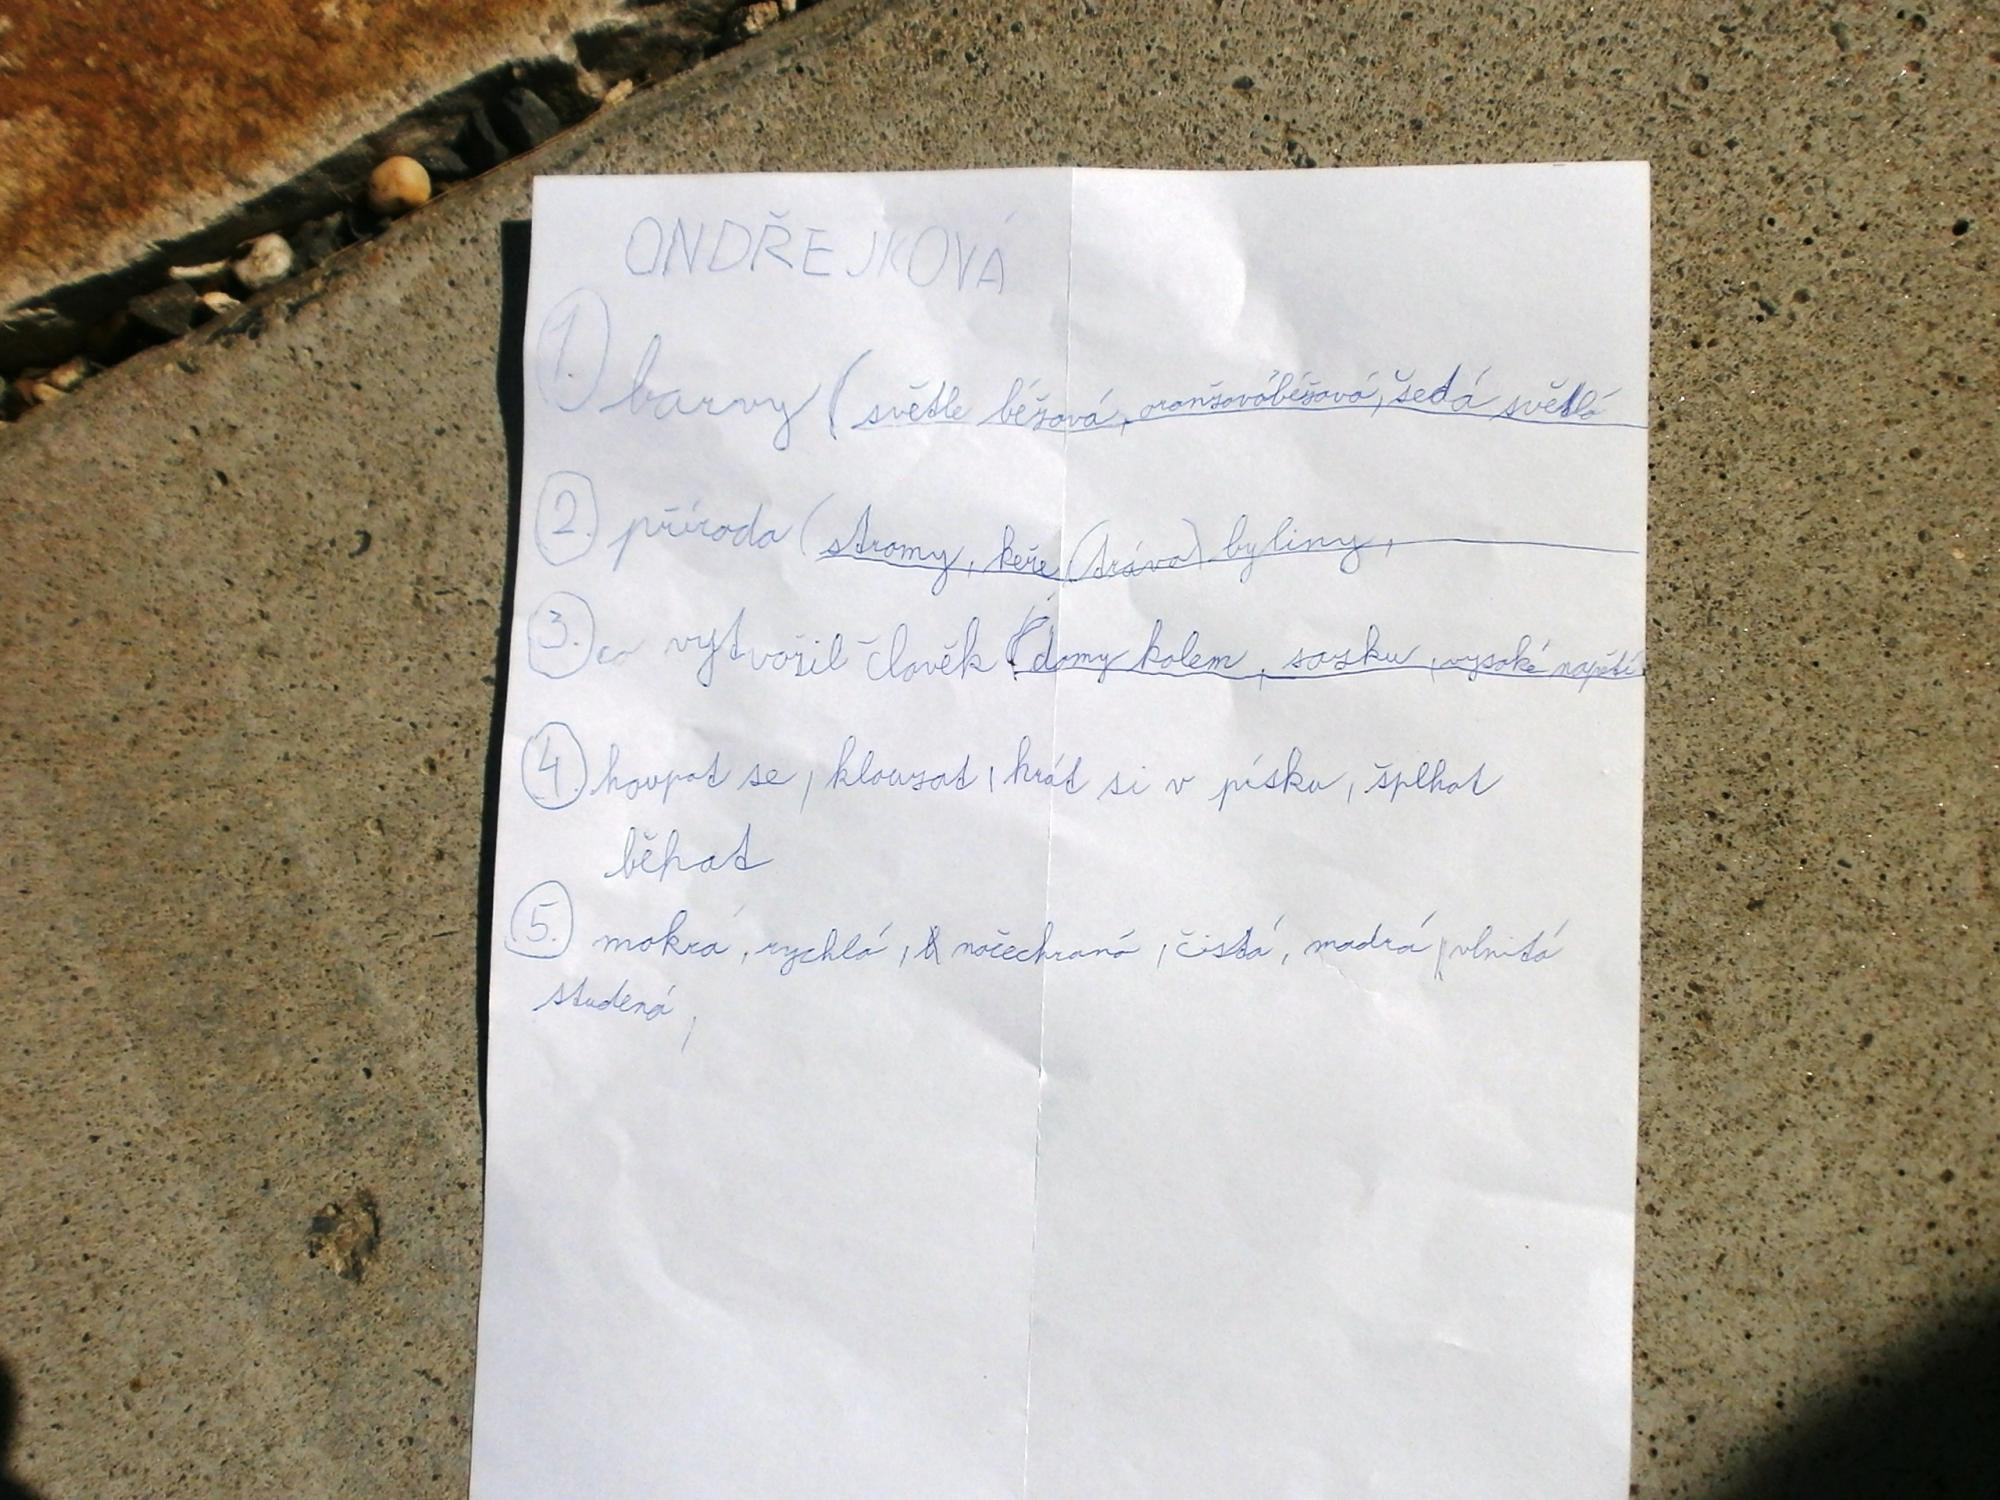 ONDŘEJKOVÁ
1. barvy (světle béžová, oranžovóběžová, šedá světlá
2. příroda (stromy, keře (tráva) byliny,
3. co vytvořil člověk (domy kolem, sošku, vysoké napětí
4. houpat se, klouzat, hrát si v písku, šplhat
běhat
5. mokrá, rychlá, načechraná, čistá, modrá, vlnitá
studená,